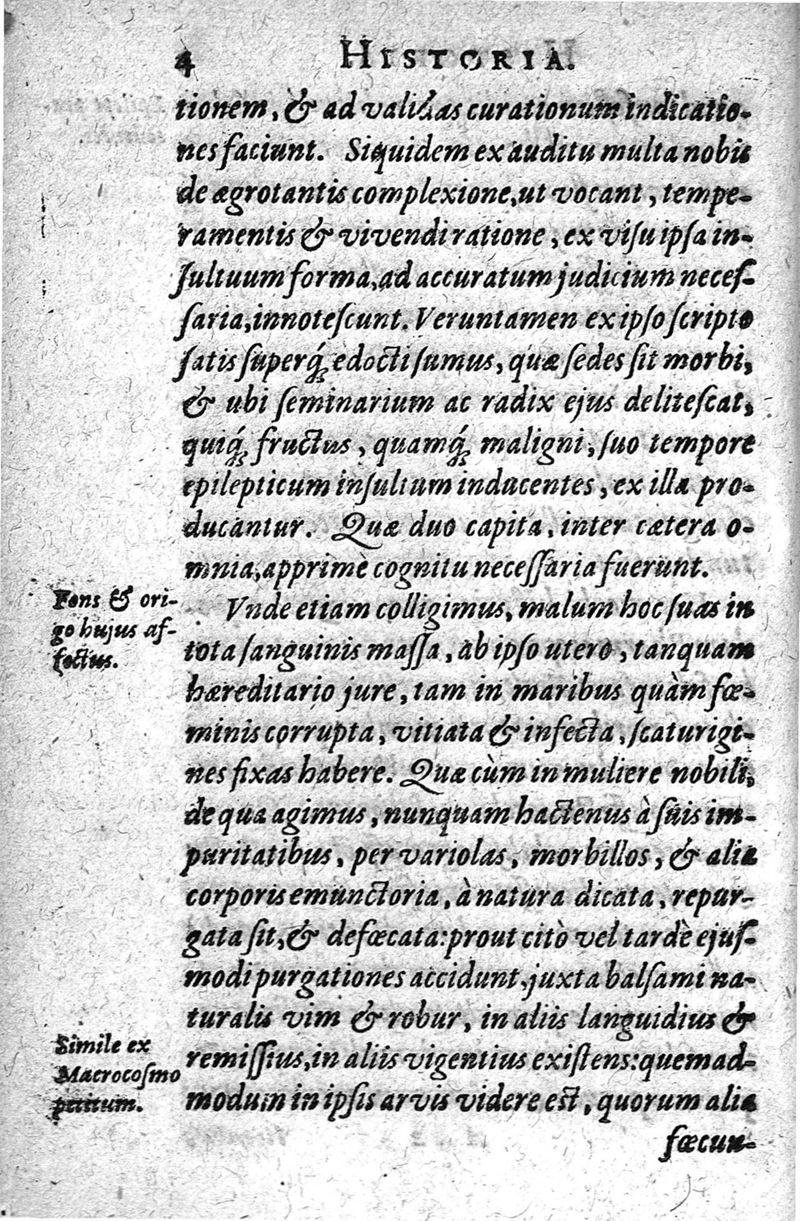 4 HISTORIA.
tionem, & ad validas curationum indicatio-
nes faciunt. Siquidem ex auditu multa nobis
de ægrotantis complexione, ut vocant, tempe-
ramentis & vivendi ratione, ex viſu ipſa in-
ſultuum forma, ad accuratum judicium neceſ-
ſaria, innoteſcunt. Veruntamen ex ipſo ſcripto
ſatis ſuperq́; edocti ſumus, quæ ſedes ſit morbi,
& ubi ſeminarium ac radix ejus deliteſcat,
quiq́; fructus, quamq́; maligni, ſuo tempore
epilepticum inſultum inducentes, ex illa pro-
ducantur. Quæ duo capita, inter cætera o-
mnia, apprimè cognitu neceſſaria fuerunt.
Fons & ori-
go hujus af-
fectus.
Vnde etiam colligimus, malum hoc ſuas in
tota ſanguinis maſſa, ab ipſo utero, tanquam
hæreditario jure, tam in maribus quàm fœ-
minis corrupta, vitiata & infecta, ſcaturigi-
nes fixas habere. Quæ cùm in muliere nobili,
de qua agimus, nunquam hactenus à ſuis im-
puritatibus, per variolas, morbillos, & alia
corporis emunctoria, à natura dicata, repur-
gata ſit, & defœcata: prout citò vel tardè ejuſ-
modi purgationes accidunt, juxta balſami na-
turalis vim & robur, in aliis languidius &
Simile ex
Macrocoſmo
petitum.
remiſſius, in aliis vigentius exiſtens: quemad-
modum in ipſis arvis videre eſt, quorum alia
fœcun-